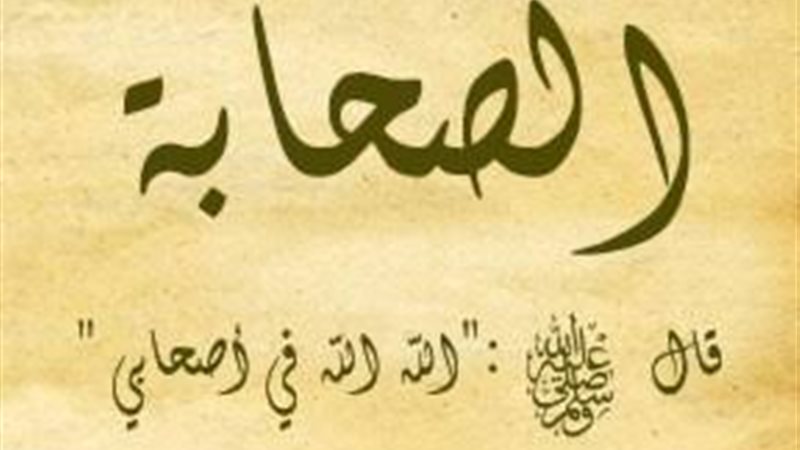 الصحابة
قال ﷺ : "الله الله في أصحابي"